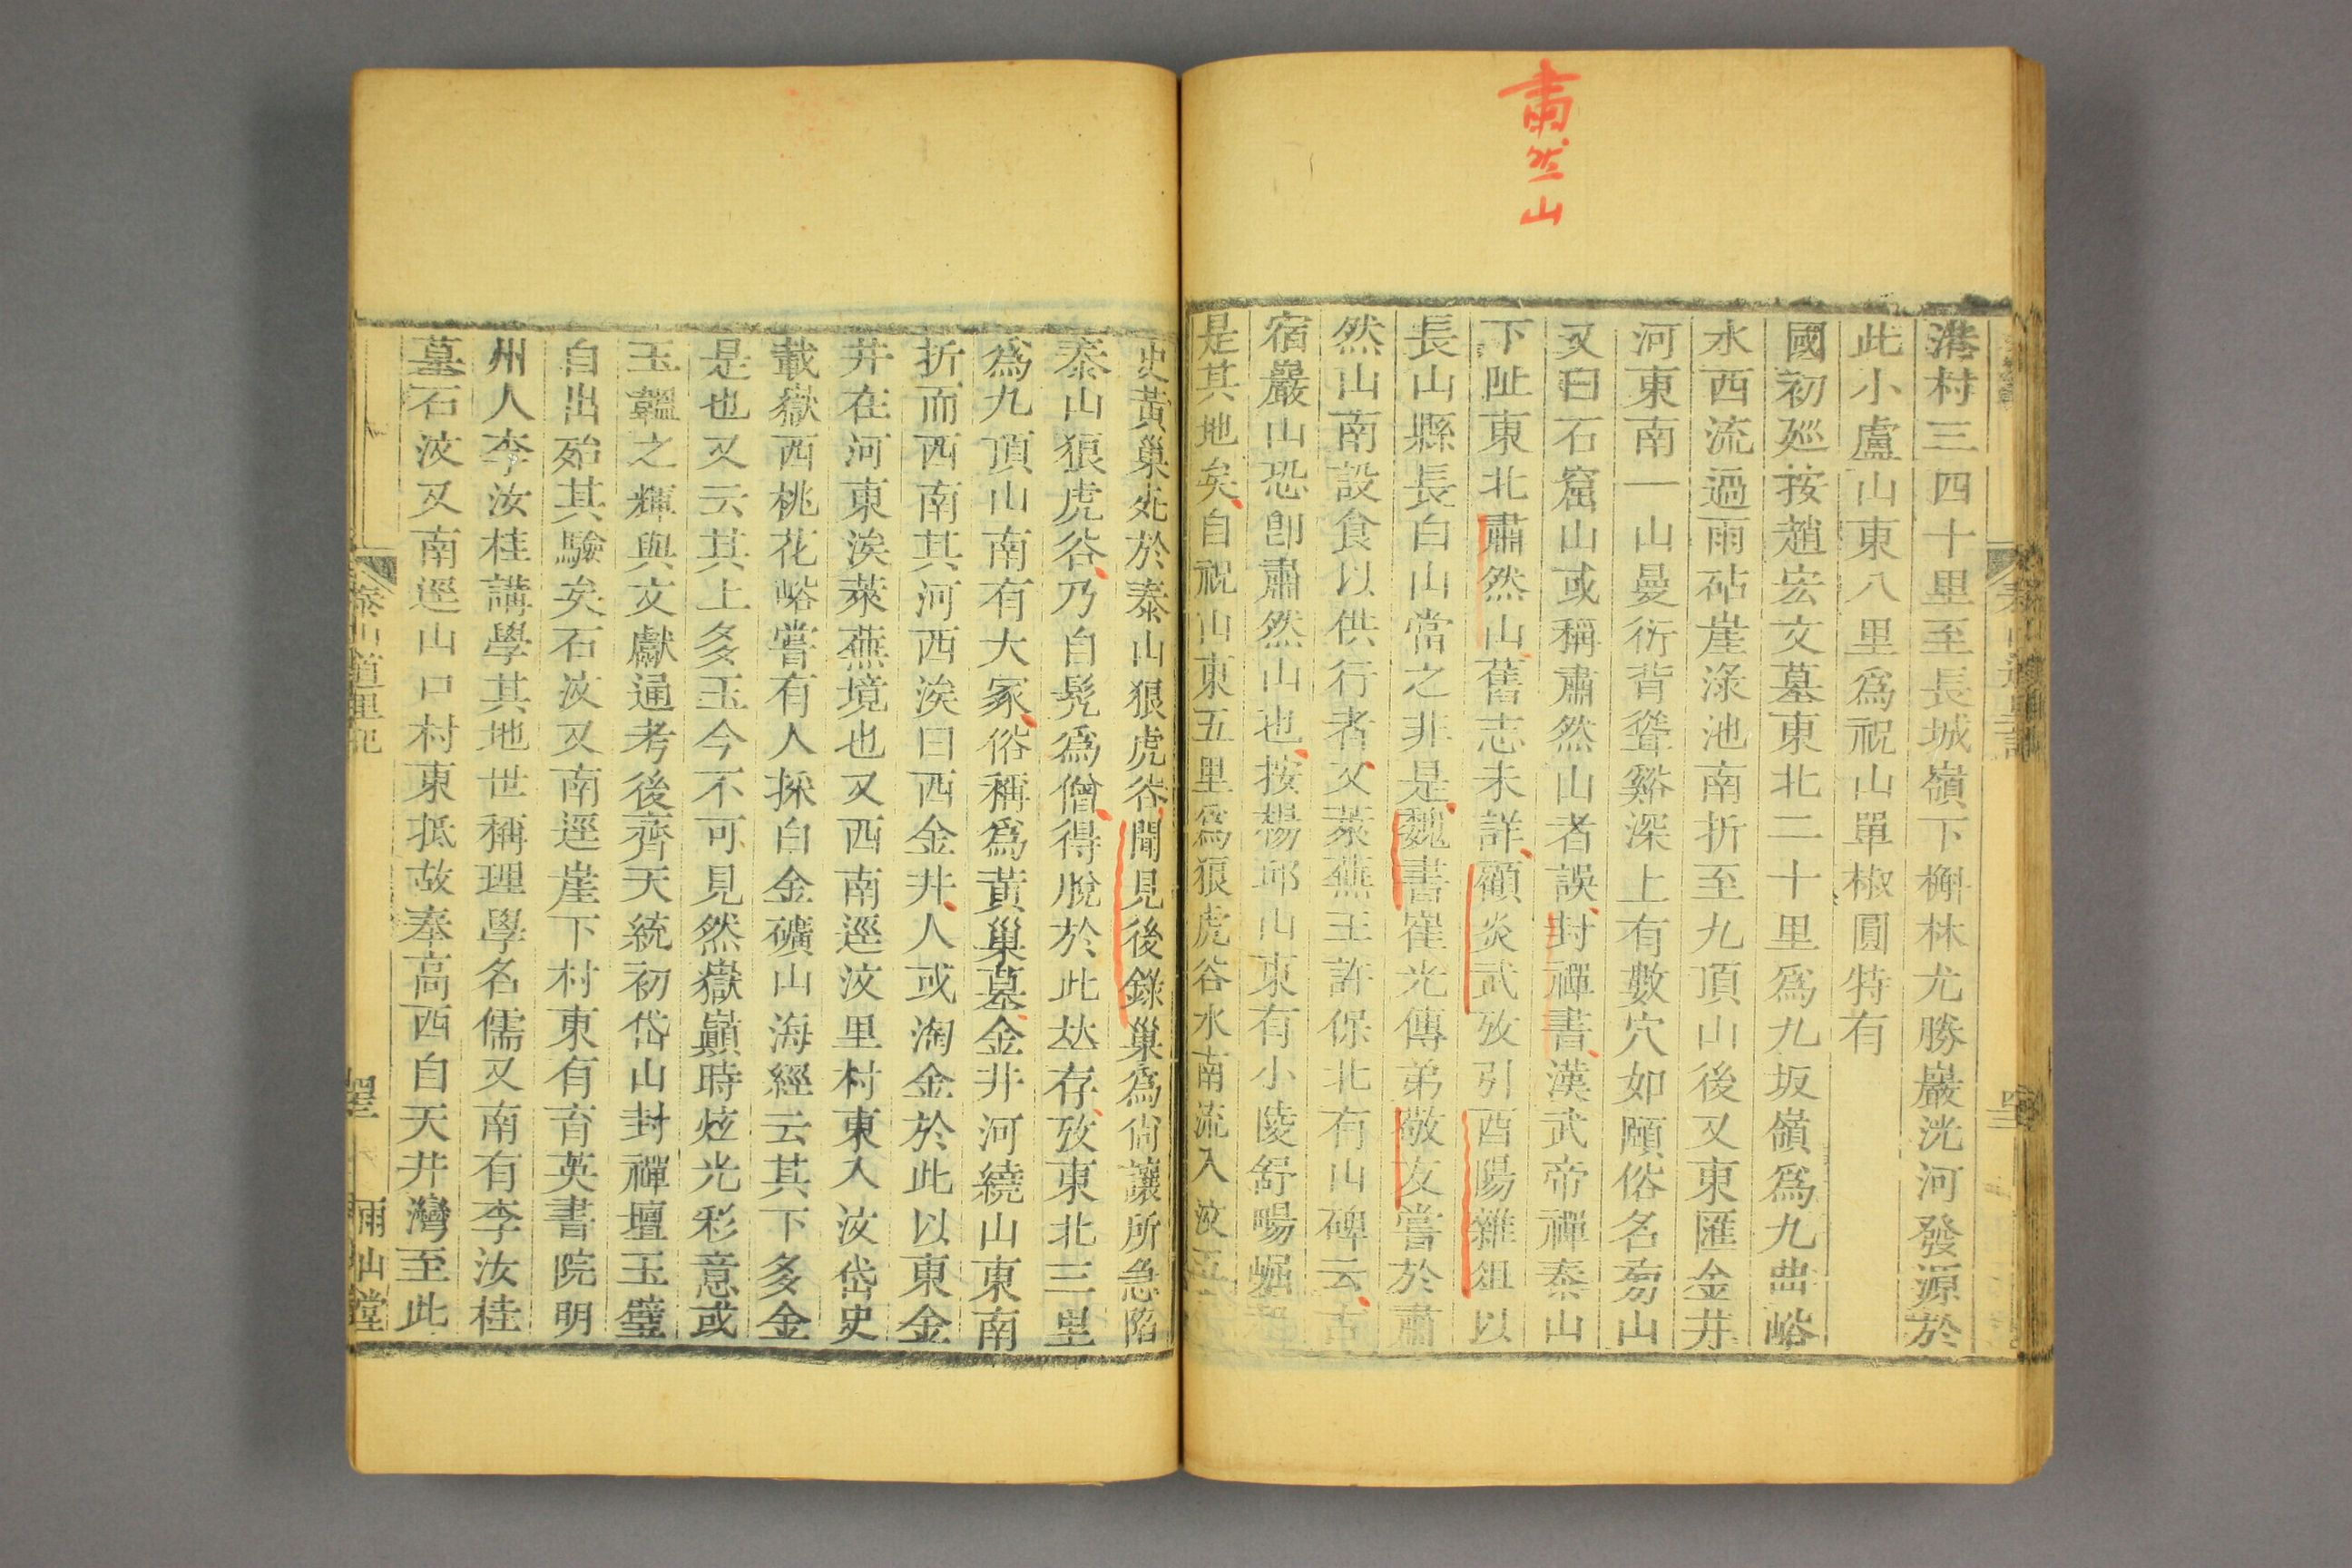 肅然山
港村三四十里至長城嶺下槲林尤勝巖洸河發源於
此小盧山東八里爲祝山單椒圓特有
國初廵按趙宏文墓東北二十里爲九坂嶺爲九曲峪
水西流過雨砧崖淥池南折至九頂山後又東匯金井
河東南一山曼衍背聳谿深上有數穴如願俗名芻山
又曰石窟山或稱肅然山者誤封禪書漢武帝禪泰山
下阯東北肅然山舊志未詳顧炎武攷引酉陽雜俎以
長山縣長白山當之非是魏書崔光傳弟敬友嘗於肅
然山南設食以供行者又萊蕪王許保北有山碑云古
宿巖山恐卽肅然山也按楊邱山東有小陵舒暢崛
是其地矣自祝山東五里爲狼虎谷水南流入汶五
史黃巢死於泰山狼虎谷聞見後錄巢爲尙讓所急陷
泰山狼虎谷乃自髡爲僧得脫於此𠀤存攷東北三里
爲九頂山南有大冢俗稱爲黃巢墓金井河繞山東南
折而西南其河西涘曰西金井人或淘金於此以東金
井在河東涘萊蕪境也又西南逕汶里村東入汶岱史
載嶽西桃花峪嘗有人採白金礦山海經云其下多金
是也又云其上多玉今不可見然嶽巔時炫光彩意或
玉韞之輝與文獻通考後齊天統初岱山封禪壇玉璧
自出殆其驗矣石汶又南逕崖下村東有育英書院明
州人李汝桂講學其地世稱理學名儒又南有李汝桂
墓石汶又南逕山口村東抵故奉高西自天井灣至此
泰山道里記
雨山堂